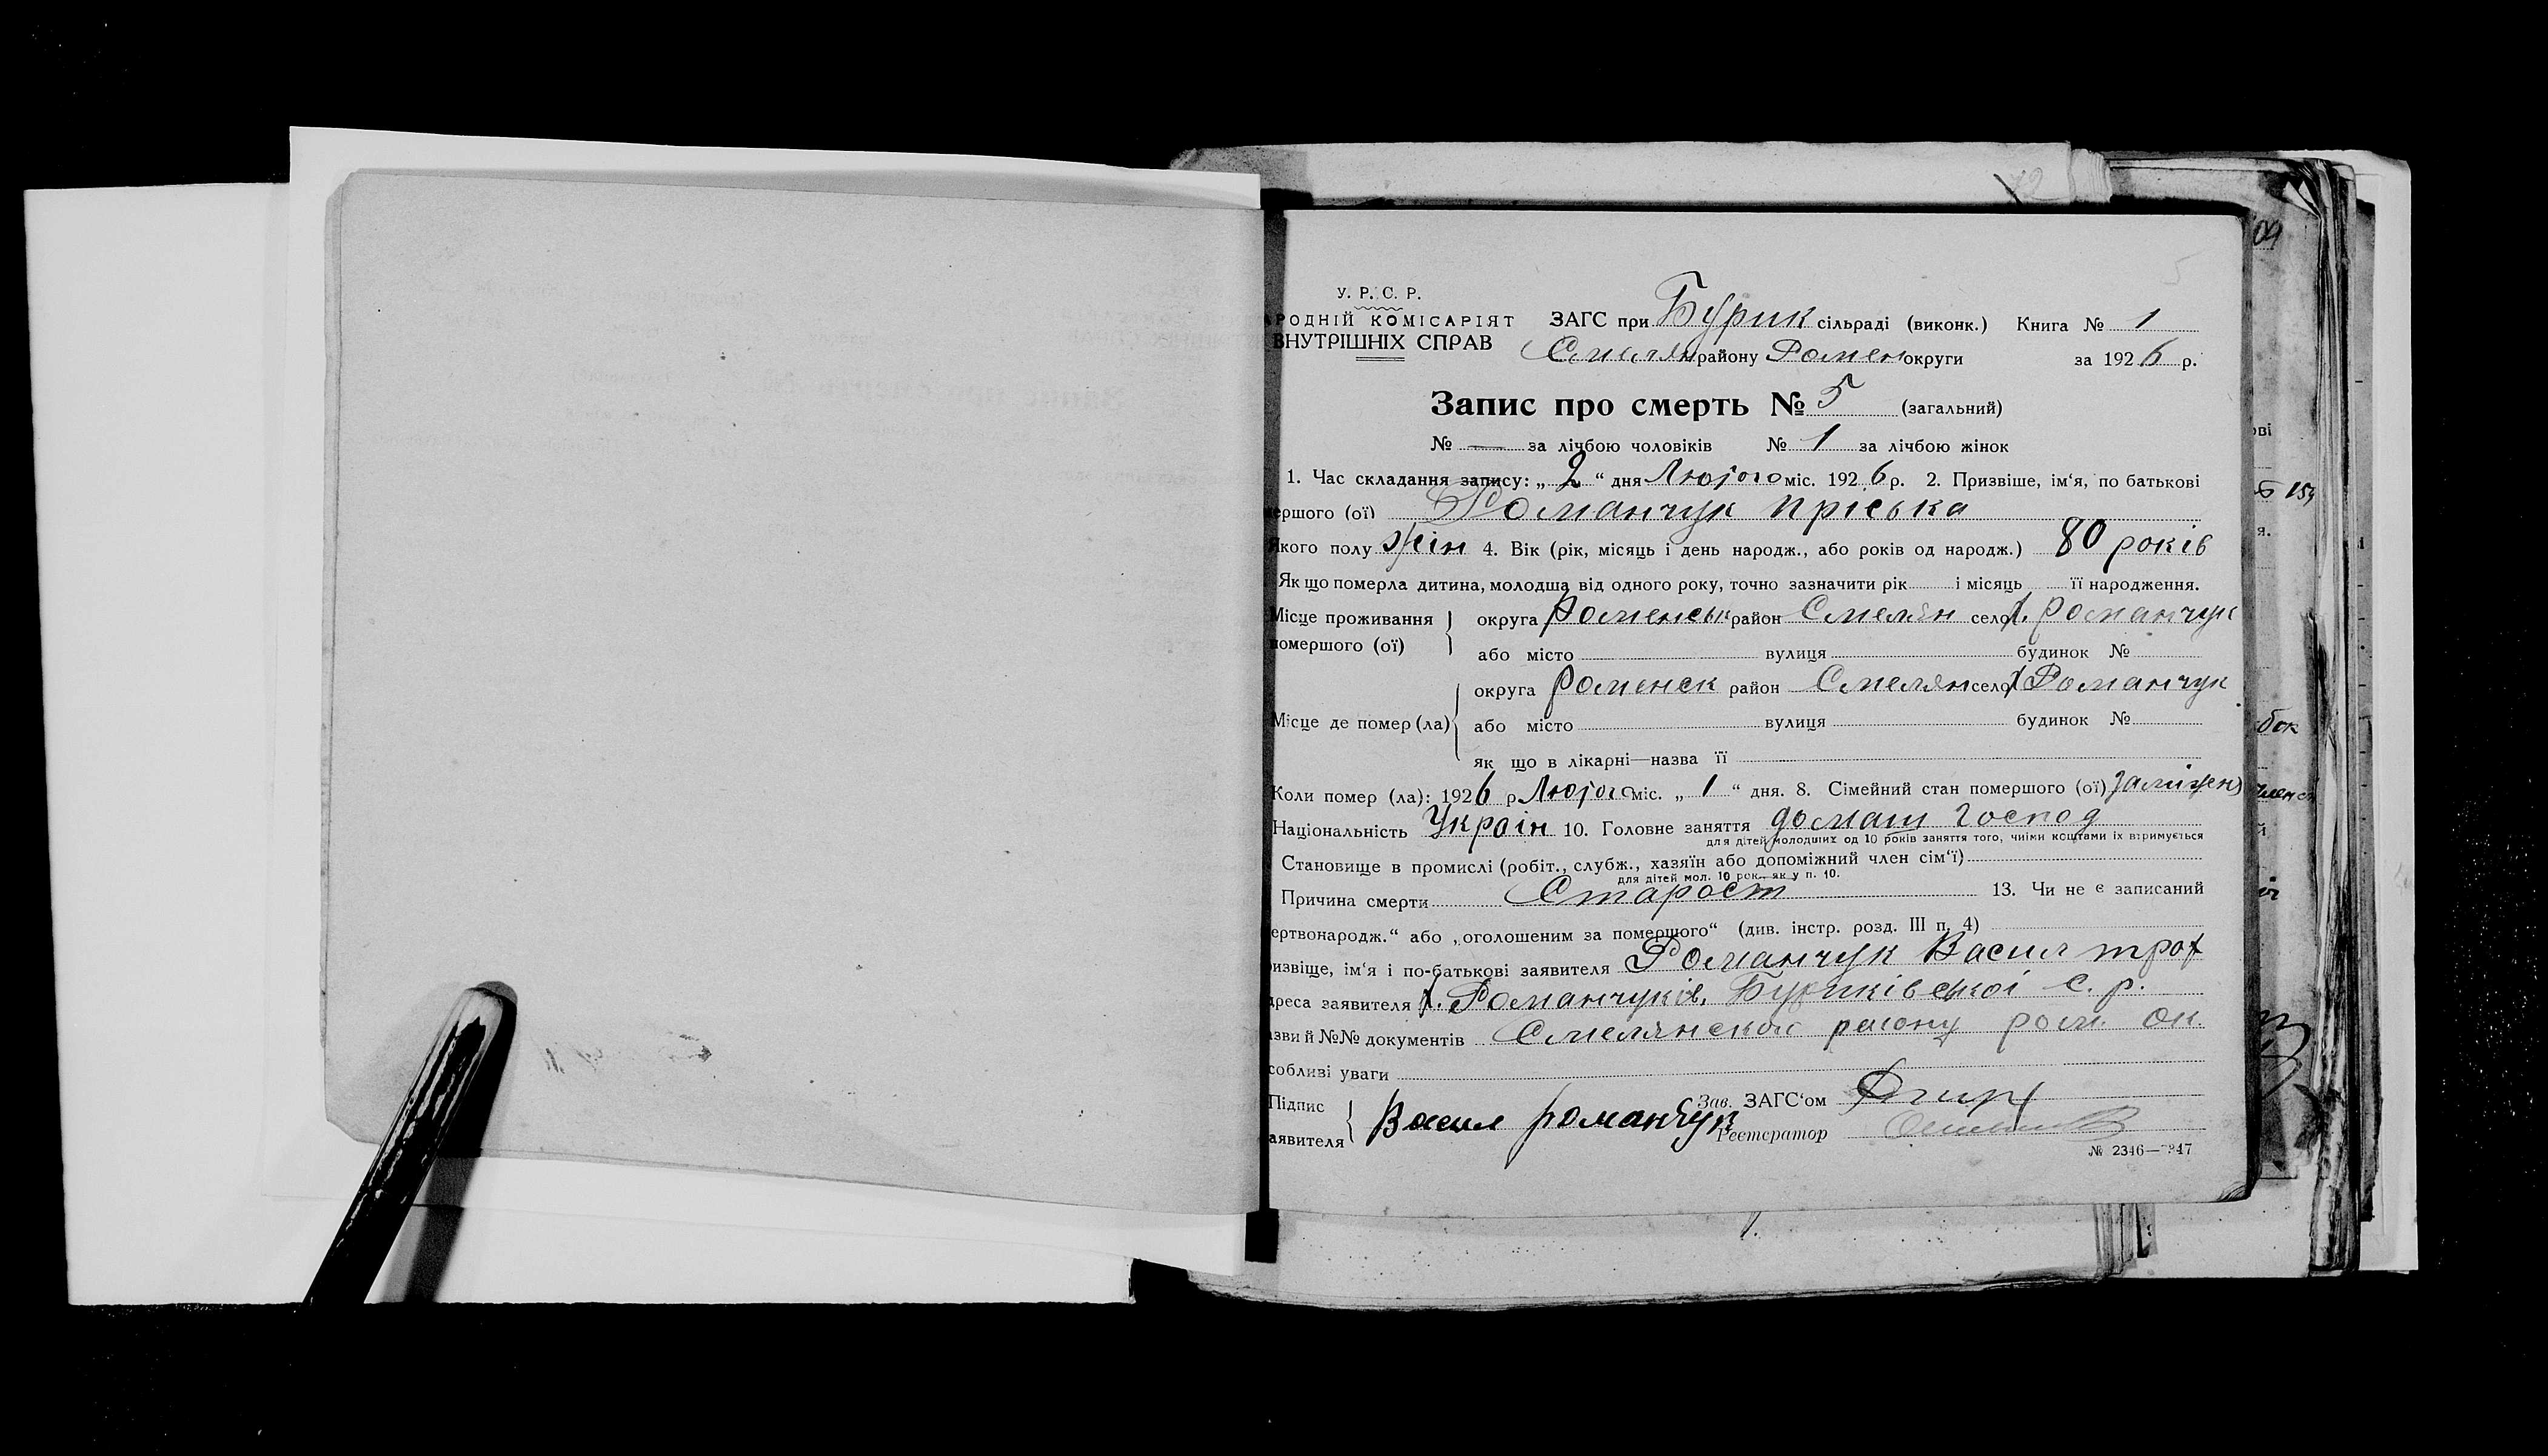 У. Р. С. Р.
РОДНІЙ КОМІСАРІЯТ ЗАГС при Бурик сільраді (виконк.) Книга № 1
ВНУТРІШНІХ СПРАВ Смелян району Ромен округи за 1926 р.
Запис про смерть № 5 (загальний)
№ — за лічбою чоловіків № 1 за лічбою жінок
1. Час складання запису: „ 2 “ дня Лютого міс. 1926 р. 2. Призвіше, ім‘я, по батькові
ершого (ої) Романчук Пріська
Якого полу жін 4. Вік (рік, місяць і день народж., або років од народж.) 80 років
Як що померла дитина, молодша від одного року, точно зазначити рік і місяць її народження.
Місце проживання округа Роменськ район Смелян село х. Романчук
померщого (ої) або місто вулиця будинок №
округа Роменск район Смелян село х Романчук
Місце де помер (ла) або місто вулиця будинок №
як що в лікарні—назва її
Коли помер (ла): 1926 р Лютого міс. „ 1 “ дня. 8. Сімейний стан помершого (ої) заміжен
Національність Украін 10. Головне заняття домаш господ
для дітей молодших од 10 років заняття того, чиїми коштами їх втримується
Становище в промислі (робіт., служб., хазяїн або допоміжний член сім‘ї)
для дітей мол. 10 рок. як у п. 10.
Причина смерти Старост 13. Чи не є записаний
ертвонародж.“ або „оголошеним за помершого“ (див. інстр. розд. III п. 4)
извіще, ім‘я і по-батькові заявителя Романчук Васил троф
дреса заявителя х. Романчуків, Буриківської с. р.
зви й №№ документів Смелянской району ром. ок.
собливі уваги
Підпис Зав. ЗАГС‘ом
аявителя Васил Романчук Реєстратор
№ 2346—